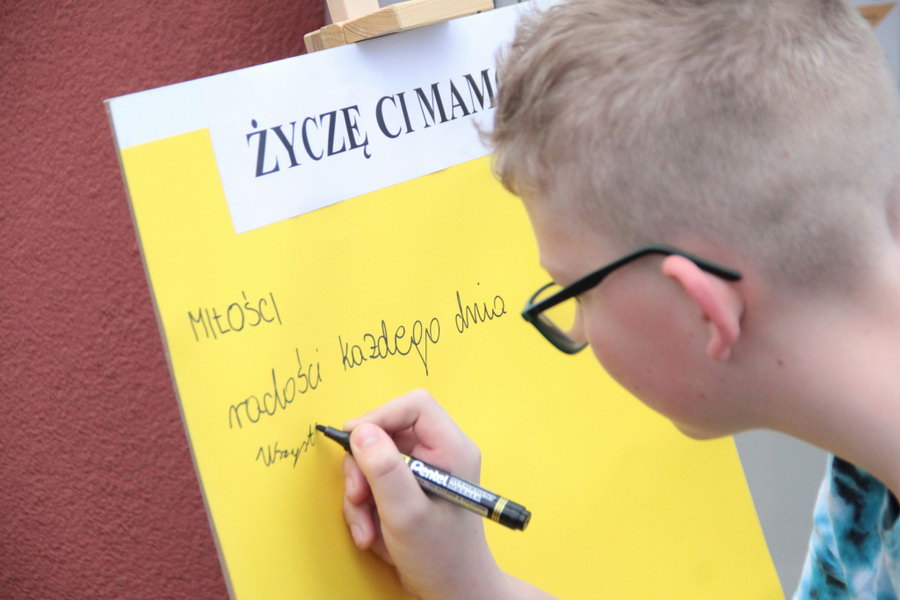 ŻYCZĘ CI MAMO
MIŁOŚCI
radości każdego dnia
Wszyst
Pentel